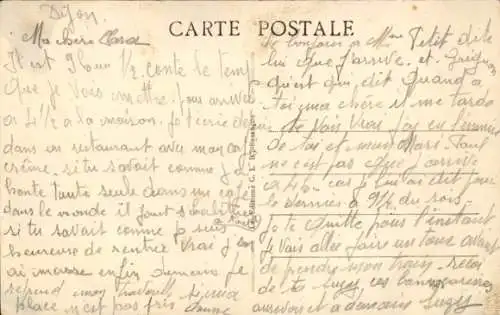 Dijon
CARTE POSTALE
Ma chère Clara
Il est 9 heur 1/2 conte le temp
que je vais mettre pour arriver
a 4 1/2 a la maison. Je t'ecrie de
dans un restaurant avec mon café
crême. si tu savait comme j'ai
honte toute seule dans un café
dans le monde il faut s'habituer
si tu savait comme je suis
heureuse de rentré vrai j'en
ai marre enfin demain je
reprend mon travail si ma
place n'est pas pris donne
le bonjour a Mme Petit dit
lui que j'arrive. et
qu'est qui dit quand a
toi ma chère il me tarde
de vais vrai j'ai
de toi et mon Mart. Paul
ne c'est pas que j'arrive
a 4 h car je lui ai dit pour
le dernier a 9 1/2 du soir
je te quitte pour l'instant
je vais aller faire un tour avant
de prendre mon train. recoi
de ta Suzy ces
aurevoir et a demain Suzy